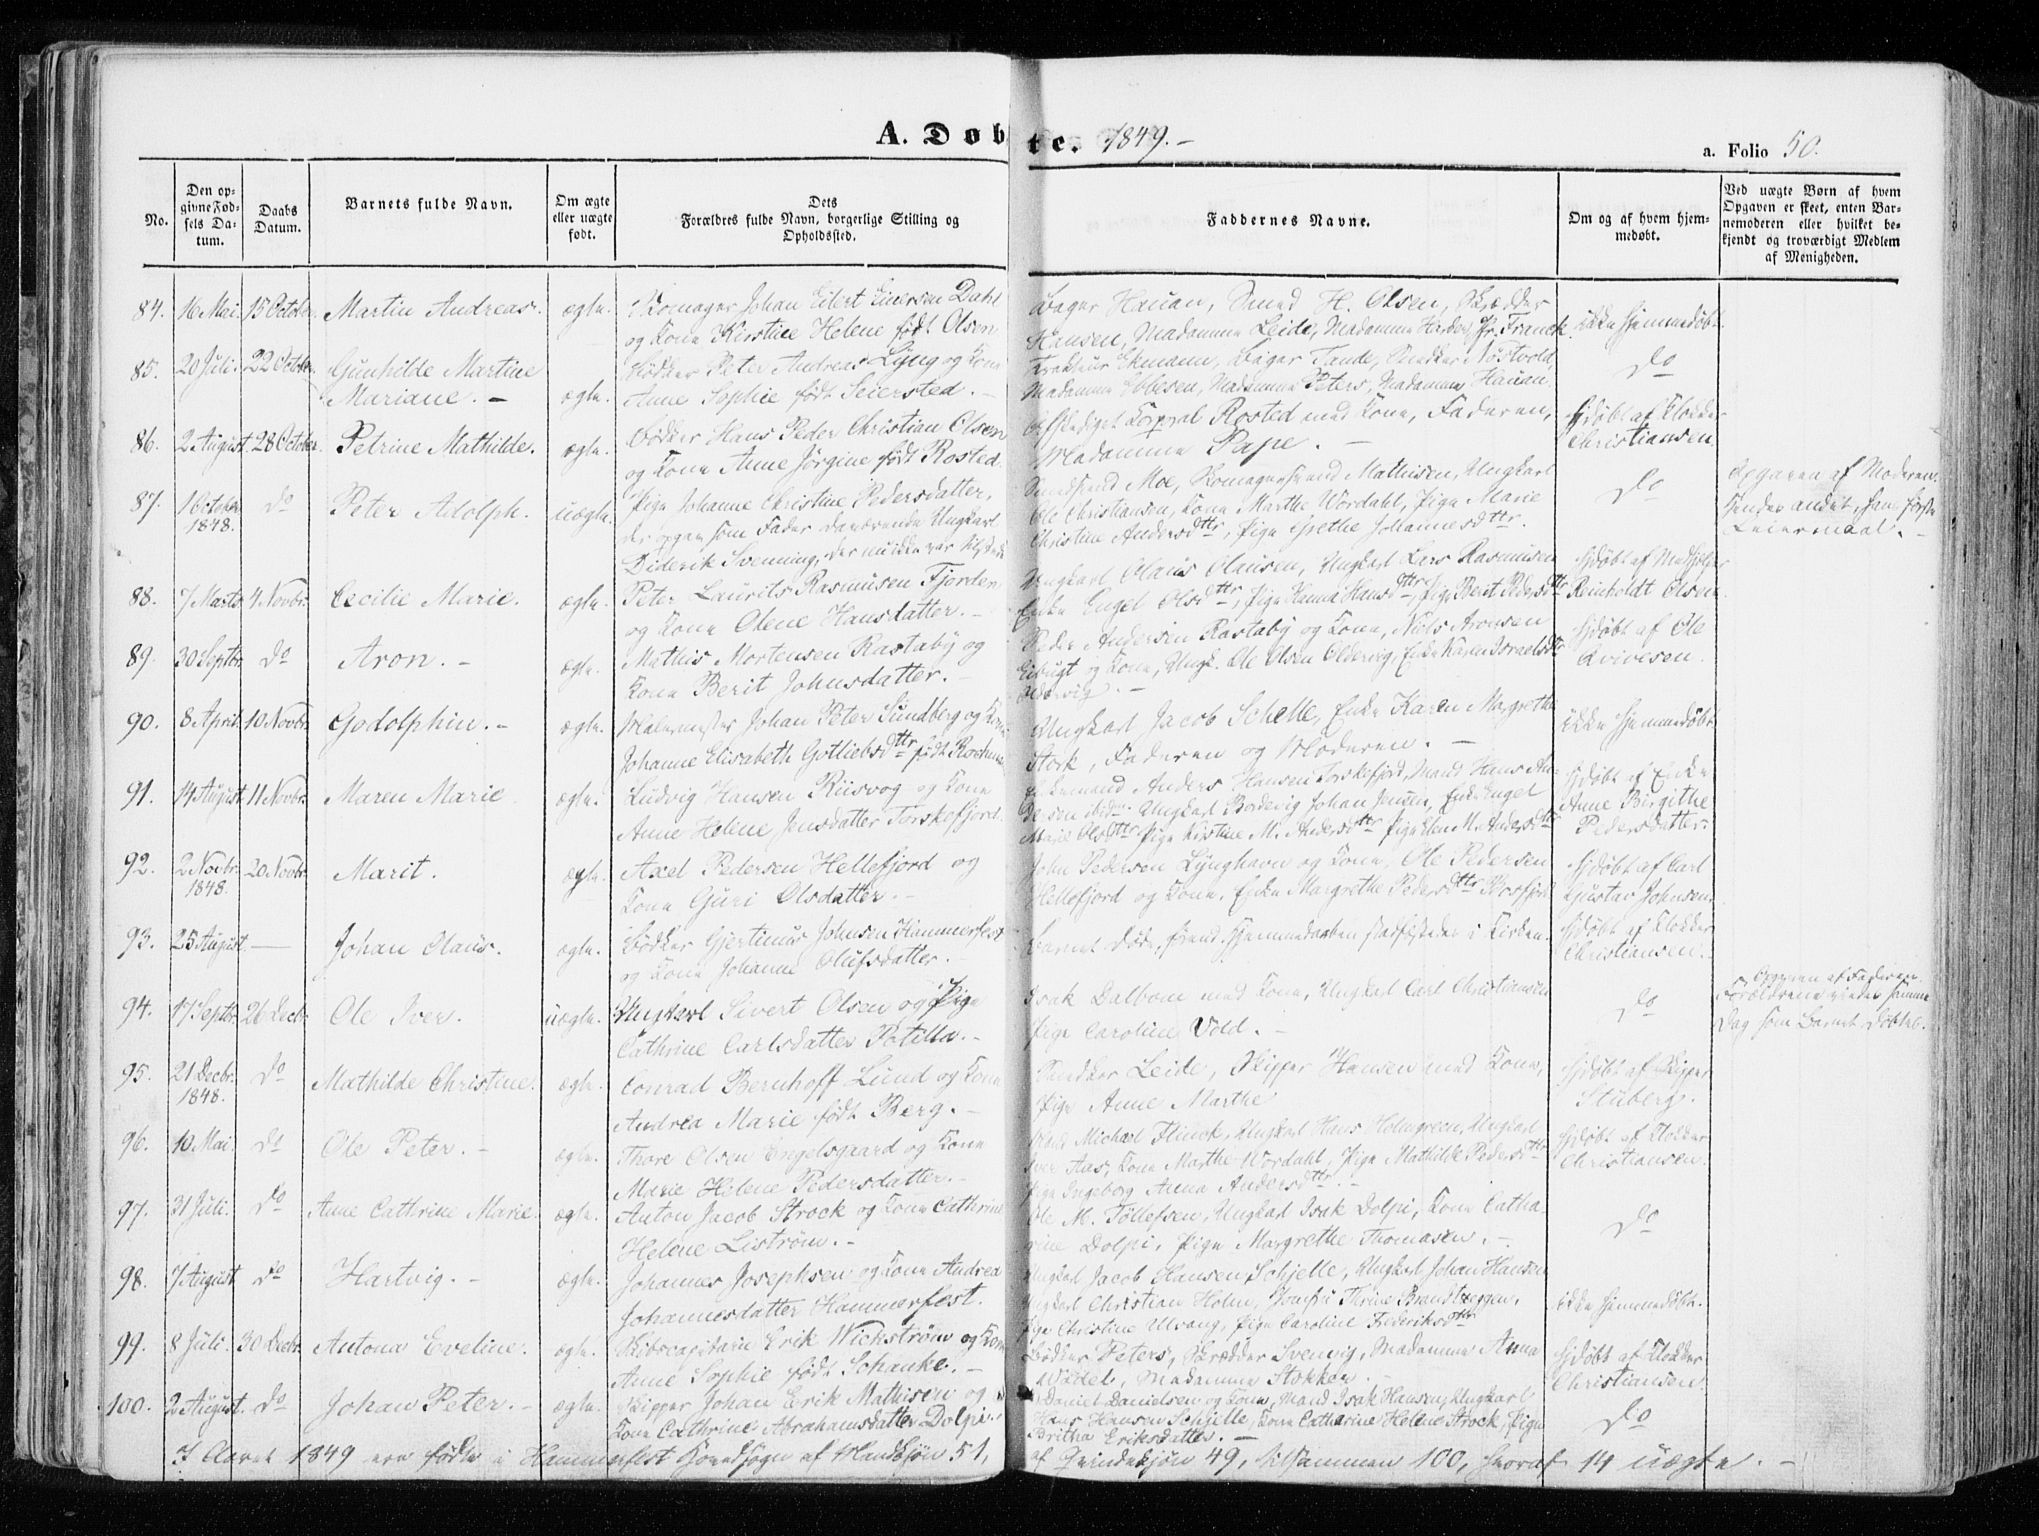 A. Døbte. 1849.-
a. Folio 50.
No.
Den opgivne Fødsels Datum.
Daabs Datum.
Barnets fulde Navn.
Om ægte eller uægte født.
Dets Forældres fulde Navn, borgerlige Stilling og Opholdssted.
Faddernes Navne.
Om og af hvem hjemmedøbt.
Ved uægte Børn af hvem Opgaven er skeet, enten Barnemoderen eller hvilket bekjendt og troværdigt Medlem af Menigheden.
84. 16 Mai. 15 October. Martin Andreas. ægte. Skomager Johan Eilert Einersen Dahl
og Kone Kirstine Helene født Olsen
Bager Hauan, Smed H. Olsen, Skrædder
Hansen, Madamme Leide, Madamme Harder, Jfr. Franck.
ikke hjemmedøbt.
85. 20 Juli. 22 October. Gunhilde Martine
Mariane. - ægte. Bødker Peter Andreas Lyng og Kone
Anne Sophie født Seiersted. -
Ekmann, Bager Tande, Snedker Nøstvold,
Madamme Ebbesen, Madamme Peters, Madamme Hauan.
do
86. 2 August. 28 October. Petrine Mathilde. ægte. Bødker Hans Peder Christian Olsen
og Kone Anne Jørgine født Rosted.
Afskediget Korporal Rosted med Kone, Faderen,
Madamme Pape. -
hjdøbt af Klokker
Christiansen.
87. 1 October
1848. do Peter Adolph. uægte. Pige Johanne Christine Pedersdatter,
der opgav som Fader daværende Ungkarl
Diderik Svenning, der nu ikke var tilstede
Smedsvend Moe, Skomagersvend Mathisen, Ungkarl
Ole Christiansen, Kone Marthe Wordahl, Pige Marie
Christine Andersdttr, Pige Grethe Johannesdttr.
do
Opgaven af Moderen.
hendes andet, hans første
Leiermaal. -
88. 7 Marts 4 Novbr. Cecilie Marie. ægte. Peter Laurits Rasmusen Fjorden
og Kone Olene Hansdatter. -
Ungkarl Olaus Olausen, Ungkarl Lars Rasmusen
Enke Engel Olsdttr, Pige Hanna Hansdttr, Pige Berit Pedersdttr
hjdøbt af
Reinholdt Olsen.
89. 30 Septbr. do Aron. - ægte. Mathis Mortensen Rastaby og
Kone Berit Johnsdatter. -
Peder Andersen Rastaby og Kone, Niels Aronsen
Eibugt og Kone, Ungk. Ole Olsen Oldervig, Enke Karen Israelsdttr
Oldervig. -
hjdøbt af Ole
Qvivesen.
90. 8 April. 10 Novbr. Godolphin. - ægte. Malermester Johan Peter Sundberg og Kone
Johanne Elisabeth Gotliebsdttr født
Ungkarl Jacob Schelle, Enke Karen Margrethe
Stork, Faderen og Moderen. -
ikke hjemmedøbt
91. 14 August 11 Novbr. Maren Marie ægte. Ludvig Hansen Riisvog og Kone
Anne Helene Jensdatter Torskefjord.
Enkemand Anders Hansen Torskefjord, Mand Hans
ibid. Ungkarl Johan Jensen, Enke Engel
Marie Olsdttr, Pige Kirstine M. Andersdttr Pige Elen M. Andersdttr
hjdøbt af Enke
Anne Birgithe
Pedersdatter.
92. 2 Novbr.
1848. 20 Novbr. Marit. ægte. Axel Pedersen Hellefjord og
Kone Guri Olsdatter. -
John Pedersen Lynghavn og Kone, Ole Pedersen
Hellefjord og Kone, Enke Margrethe Pedersdttr
hjdøbt af Carl
Gustav Johnsen.
93. 25 August. — Johan Olaus. ægte. Bødker Gjertinus Johnsen Hammerfest
og Kone Johanne Olufsdatter. -
Barnet døde, førend Hjemmedaaben stadfæstedes i Kirken.
hjdøbt af Klokker
Christiansen.
94. 17 Septbr. 26 Decbr. Ole Iver. uægte. Ungkarl Sivert Olsen og Pige
Cathrine Carlsdatter Potilla. -
Isak Dalbom med Kone, Ungkarl Carl Christiansen
Pige Caroline Vold. -
do
Opgaven af Faderen.
Forældrene viedes samme
Dag som Barnet døbtes.
95. 21 Decbr.
1848. do Mathilde Christine. ægte. Conrad Bernhoff Lund og Kone
Andrea Marie født Berg. -
Snedker Leide, Skipper Hansen med Kone,
Pige Anne Marthe
hjdøbt af Skipper
Stuberg.
96. 10 Mai. do Ole Peter. - ægte. Thore Olsen Engelsgaard og Kone
Marie Helene Pedersdatter. -
Mand Michael Flinck, Ungkarl Hans Holmgreen, Ungkarl
Iver Aas, Kone Marthe Wordahl, Pige Mathilde Pedersdttr
Pige Ingeborg Anna Andersdttr. -
hjdøbt af Klokker
Christiansen.
97. 31 Juli. do Anne Cathrine Marie. ægte. Anton Jacob Strock og Kone Cathrine
Helene Liström. -
Ole M. Tollefsen, Ungkarl Isak Dolpi, Kone Catha-
rine Dolpi, Pige Margrethe Thomasen. -
do
98. 7 August do Hartvig. - ægte. Johannes Josephsen og Kone Andrea
Johannesdatter Hammerfest.
Ungkarl Jacob Hansen Schjelle, Ungkarl Johan Hansen
Ungkarl Christian Holm, Jomfru Thrine Brandtzeggen,
Pige Christine Ulvang, Pige Caroline Frederiksdttr
ikke hjemmedøbt.
99. 8 Juli. 30 Decbr. Antona Eveline. ægte. Skibscapitain Erik Wickstrøm og Kone
Anne Sophie født Schanke. -
Bødker Peters, Skrædder Svenvig, Madamme Anna
Madamme Stokken. -
hjdøbt af Klokker
Christiansen.
100. 2 August. do Johan Peter. - ægte. Skipper Johan Erik Mathisen og
Kone Cathrine Abrahamsdatter Dolpi.
Daniel Danielsen og Kone, Mand Isak Hansen, Ungkarl
Hans Hansen Schjelle, Kone Catharine Helene Strock, Pige
Britha Eriksdatter. -
do
I Aaret 1849 ere fødte i Hammerfest Hovedsogn af Mandkjøn 51, af Qvindekjøn 49, tilsammen 100, hvoraf 14 uægte. -